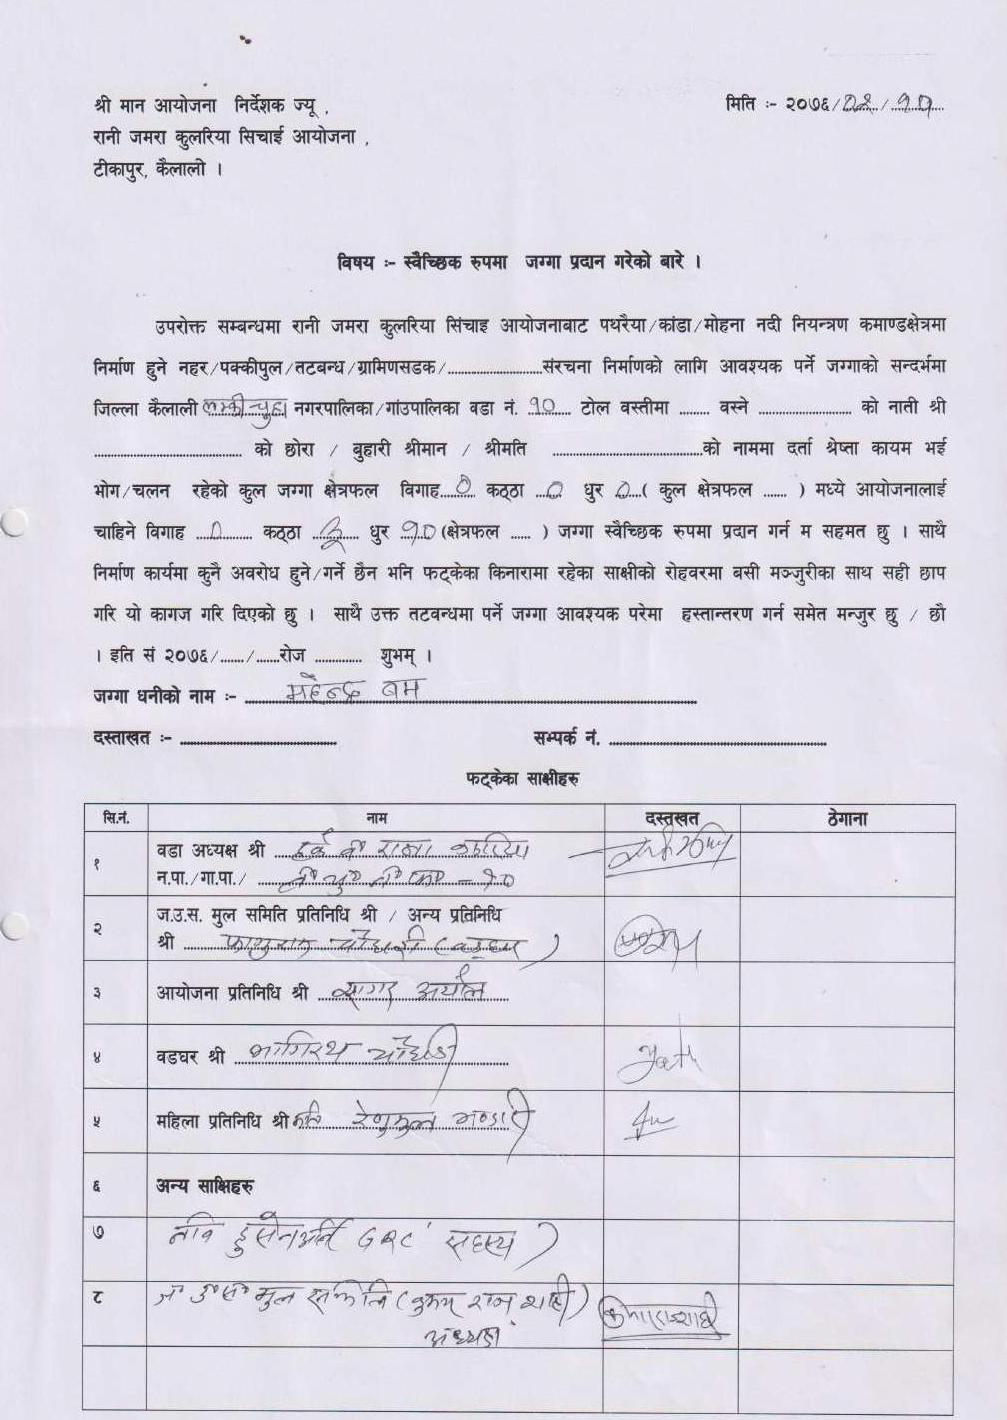 श्री मान आयोजना निर्देशक ज्यू ,
मिति :- २०७६/०२/१७
रानी जमरा कुलरिया सिचाई आयोजना ,
टीकापुर, कैलाली ।
विषय :- स्वैच्छिक रुपमा जग्गा प्रदान गरेको बारे ।
उपरोक्त सम्बन्धमा रानी जमरा कुलरिया सिंचाइ आयोजनाबाट पथरैया/कांडा/मोहना नदी नियन्त्रण कमाण्डक्षेत्रमा
निर्माण हुने नहर/पक्कीपुल/तटबन्ध/ग्रामिणसडक/........................संरचना निर्माणको लागि आवश्यक पर्ने जग्गाको सन्दर्भमा
जिल्ला कैलाली लम्की चुहा नगरपालिका/गांउपालिका वडा नं. १० टोल वस्तीमा ........ वस्ने ........................ को नाती श्री
...................................... को छोरा / बुहारी श्रीमान / श्रीमति ......................................को नाममा दर्ता श्रेष्ता कायम भई
भोग/चलन रहेको कुल जग्गा क्षेत्रफल विगाह ० कठ्ठा ० धुर ० ( कुल क्षेत्रफल ...... ) मध्ये आयोजनालाई
चाहिने विगाह ० कठ्ठा ३ धुर १० (क्षेत्रफल ..... ) जग्गा स्वैच्छिक रुपमा प्रदान गर्न म सहमत छु । साथै
निर्माण कार्यमा कुनै अवरोध हुने/गर्ने छैन भनि फट्केका किनारामा रहेका साक्षीको रोहवरमा बसी मञ्जुरीका साथ सही छाप
गरि यो कागज गरि दिएको छु । साथै उक्त तटवन्धमा पर्ने जग्गा आवश्यक परेमा हस्तान्तरण गर्न समेत मन्जुर छु / छौ
। इति सं २०७६/....../......रोज ............ शुभम् ।
जग्गा धनीको नाम :- महेन्द्र बम
दस्ताखत :- ........................................ सम्पर्क नं. ........................................
फट्केका साक्षीहरु
सि.नं. नाम दस्तखत ठेगाना
१ वडा अध्यक्ष श्री
न.पा./गा.पा./ - १०
२ ज.उ.स. मुल समिति प्रतिनिधि श्री / अन्य प्रतिनिधि
श्री चौधरी
३ आयोजना प्रतिनिधि श्री सागर अर्याल
४ वडघर श्री भागिरथ चौधरी
५ महिला प्रतिनिधि श्री
६ अन्य साक्षिहरु
७ GRC सदस्य
८ ज उ स मुल समिति शाही
अध्यक्ष